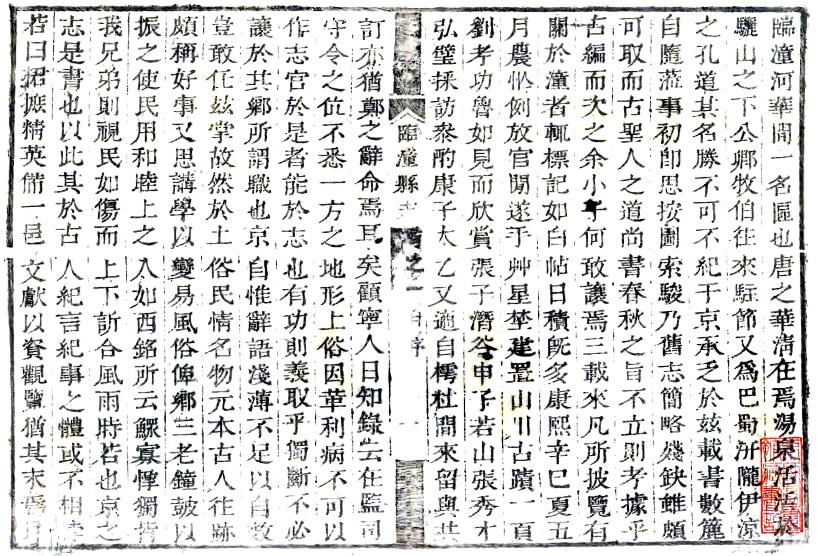 臨潼河華間一名區也唐之華清在焉湯泉活活於
驪山之下公卿牧伯往來駐節又爲巴蜀汧隴伊涼
之孔道其名勝不可不紀于京承乏於兹載書數簏
自隨蒞事初卽思按圖索駿乃舊志簡略殘缺雖頗
可取而古聖人之道尚書春秋之旨不立則考據乎
古編而次之余小子何敢讓焉三載來凡所披覽有
關於潼者輒標記如白帖日積旣多康熙辛巳夏五
月農忙例放官閒遂于艸星埜建置山川古蹟一頁
劉孝功魯如見而欣賞張子潛谷申子若山張秀才
弘璧採訪叅酌康子太乙又適自樗杜間來留與共
臨潼縣志
自序
一
訂亦猶鄭之辭命焉耳矣顧寧人日知錄云在監司
守令之位不悉一方之地形土俗因革利病不可以
作志官於是者能於志也有功則義取乎獨斷不必
讓於其鄉所謂職也京自惟辭語淺薄不足以自敘
豈敢任兹掌故然於土俗民情名物元本古人往跡
頗稱好事又思講學以變易風俗俾鄉三老鐘鼓以
振之使民用和睦上之人如西銘所云鰥寡惸獨皆
我兄弟則視民如傷而上下訢合風雨時若也京之
志是書也以此其於古人紀言紀事之體或不相
若曰摭精英備一邑文獻以資觀覽猶其末